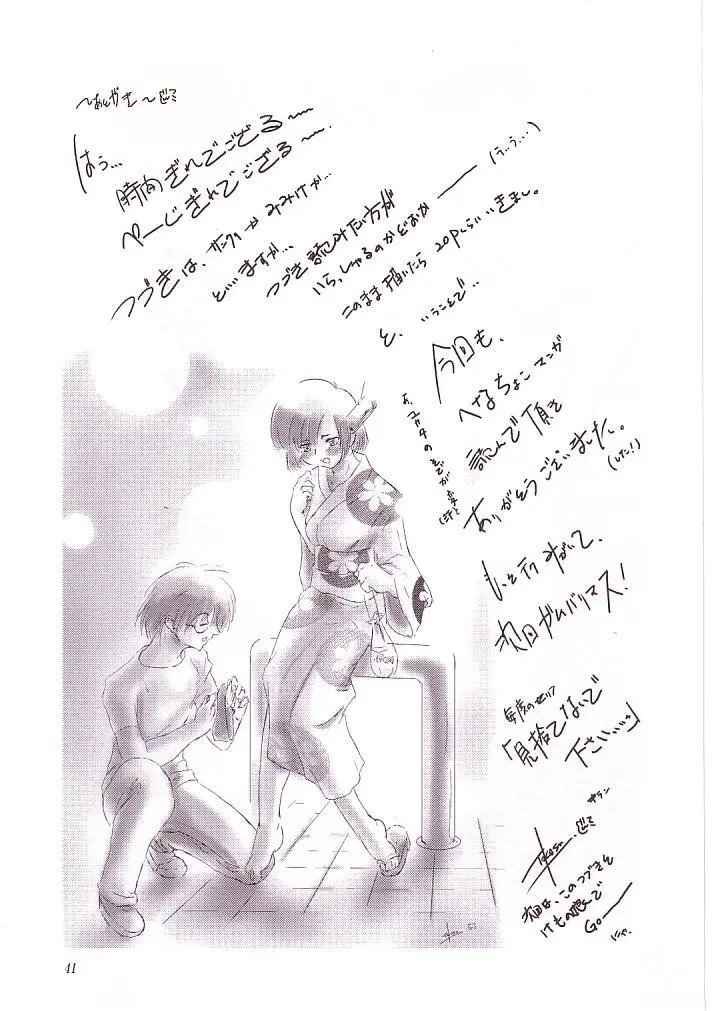 〜あとがき〜
はう…
時間ぎれでござる〜
ページぎれでござる〜.
つづきは、サンクリかみみけか…
といいますか…
つづき読みたい方が
いらっしゃるのかどおか──(う…う…)
このまま描いたら20Pくらいいきまし。
と、いうことで‥
今回も、
へなちょこマンガ
読んで頂き
ありがとうございました。
(した!)
もっと行みがいて、
次回がんバリマス!
毎度のセリフ
「見捨てないで
下さい……」
次回は、このつづきを
けもの娘で
GO──
にゃ.
41